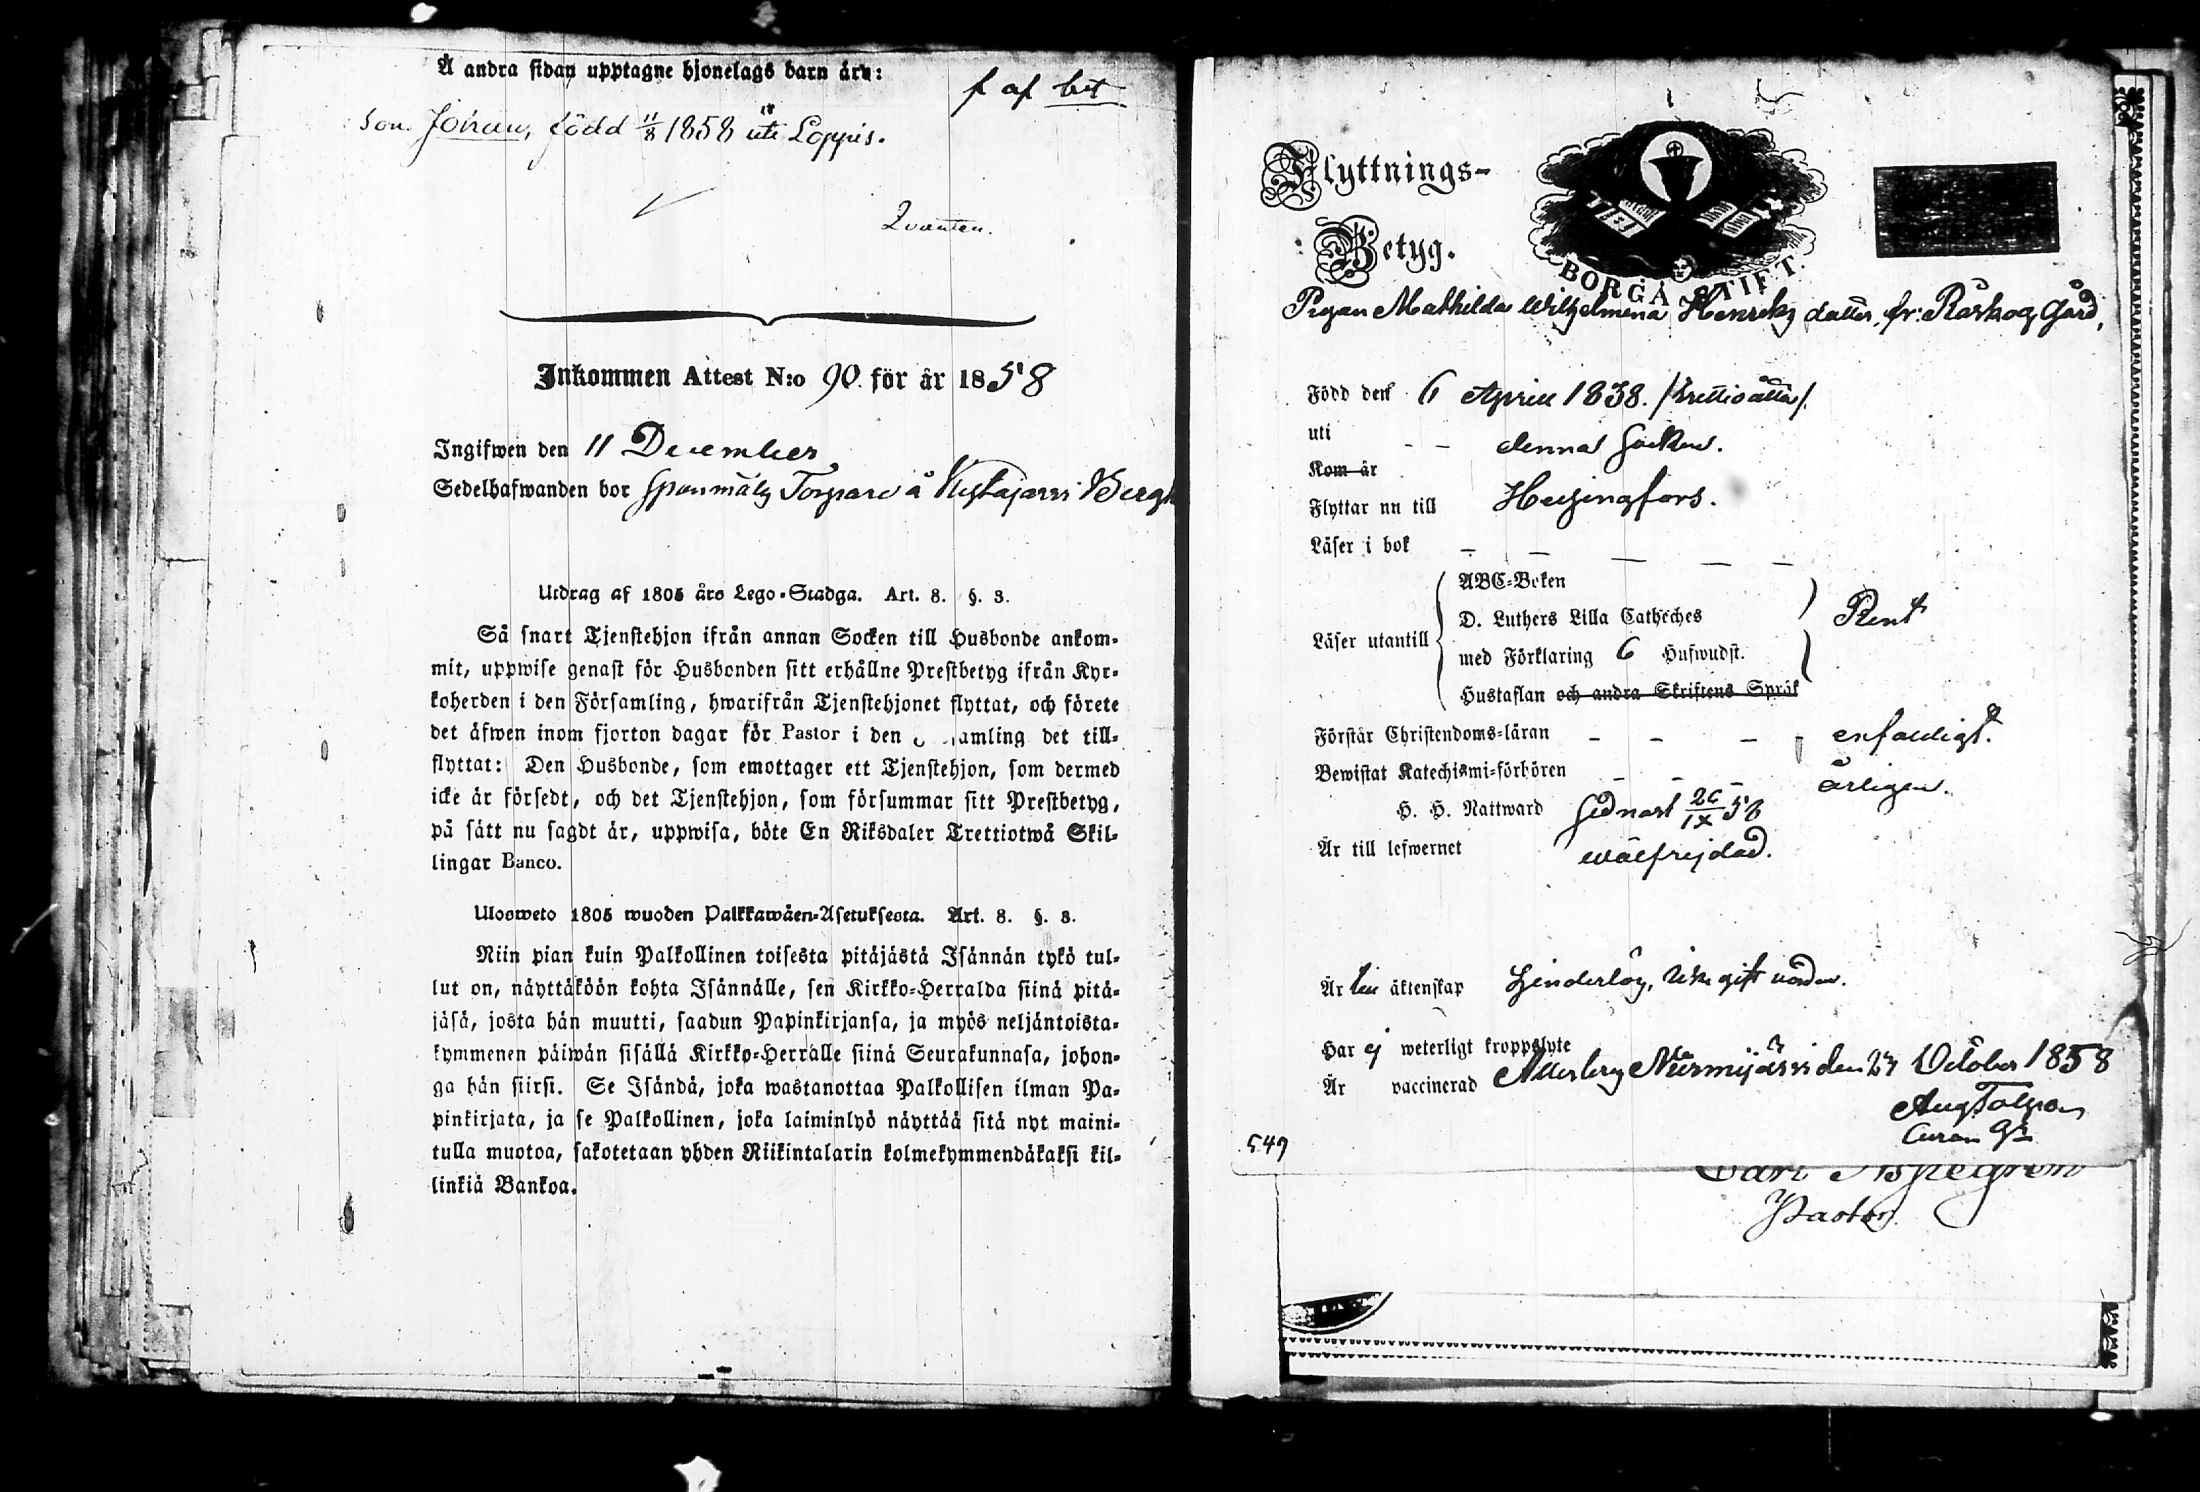 Å andra sidan upptagne hjonelags barn äro:
f af bet
Son Johan, född 11/8 1858 uti Loppis.
Qvanten.
Inkommen Attest N:o 90 för år 1858
Ingifwen den 11 December
Sedelhafwanden bor Spånmäls Torpare å
Utdrag af 1805 års Lego-Stadga. Art. 8. §. 3.
Så snart Tjenstehjon ifrån annan Socken till Husbonde ankom-
mit, uppwise genast för Husbonden sitt erhållne Prestbetyg ifrån Kyr-
koherden i den Församling, hwarifrån Tjenstehjonet flyttat, och förete
det äfwen inom fjorton dagar för Pastor i den amling det till-
flyttat: Den Husbonde, som emottager ett Tjenstehjon, som dermed
icke är försedt, och det Tjenstehjon, som försummar sitt Prestbetyg,
på sätt nu sagdt är, uppwisa, böte En Riksdaler Trettiotwå Skil-
lingar Banco.
Ulosweto 1805 wuoden Palkkawäen-Asetuksesta. Art. 8. §. 3.
Niin pian kuin Palkollinen toisesta pitäjästä Isännän tykö tul-
lut on, näyttäköön kohta Isännälle, sen Kirkko-Herralda siinä pitä-
jäsä, josta hän muutti, saadun Papinkirjansa, ja myös neljäntoista-
kymmenen päiwän sisällä Kirkko-Herralle siinä Seurakunnasa, johon-
ga hän siirsi. Se Isändä, joka wastanottaa Palkollisen ilman Pa-
pinkirjata, ja se Palkollinen, joka laiminlyö näyttää sitä nyt maini-
tulla muotoa, sakotetaan yhden Riikintalarin kolmekymmendäkaksi kil-
linkiä Bankoa.
Flyttnings-
Betyg.
BORGÅ STIFT.
Pigan Mathilda Wilhelmina Henriks dotter fr: Råskog Gård,
Född den 6 April 1838. /trettioåtta/.
uti denna Socken.
Kom år
Flyttar nu till Helsingfors.
Läser i bok
Läser utantill
ABC-Boken
D. Luthers Lilla Catheches
med Förklaring 6 Hufwudst.
Hustaflan och andra Skriftens Språk
Rent
Förstår Christendoms-läran enfaldigt.
Bewistat Katechismi-förhören årligen.
H. H. Nattward sednast 26/IX 58
Är till lefwernet wälfrejdad.
Är till äktenskap hinderlös, icke gift
Har ej weterligt kroppslyte
Är vaccinerad Nurmijärvi den 27 October 1858
Aug
549
Pastor